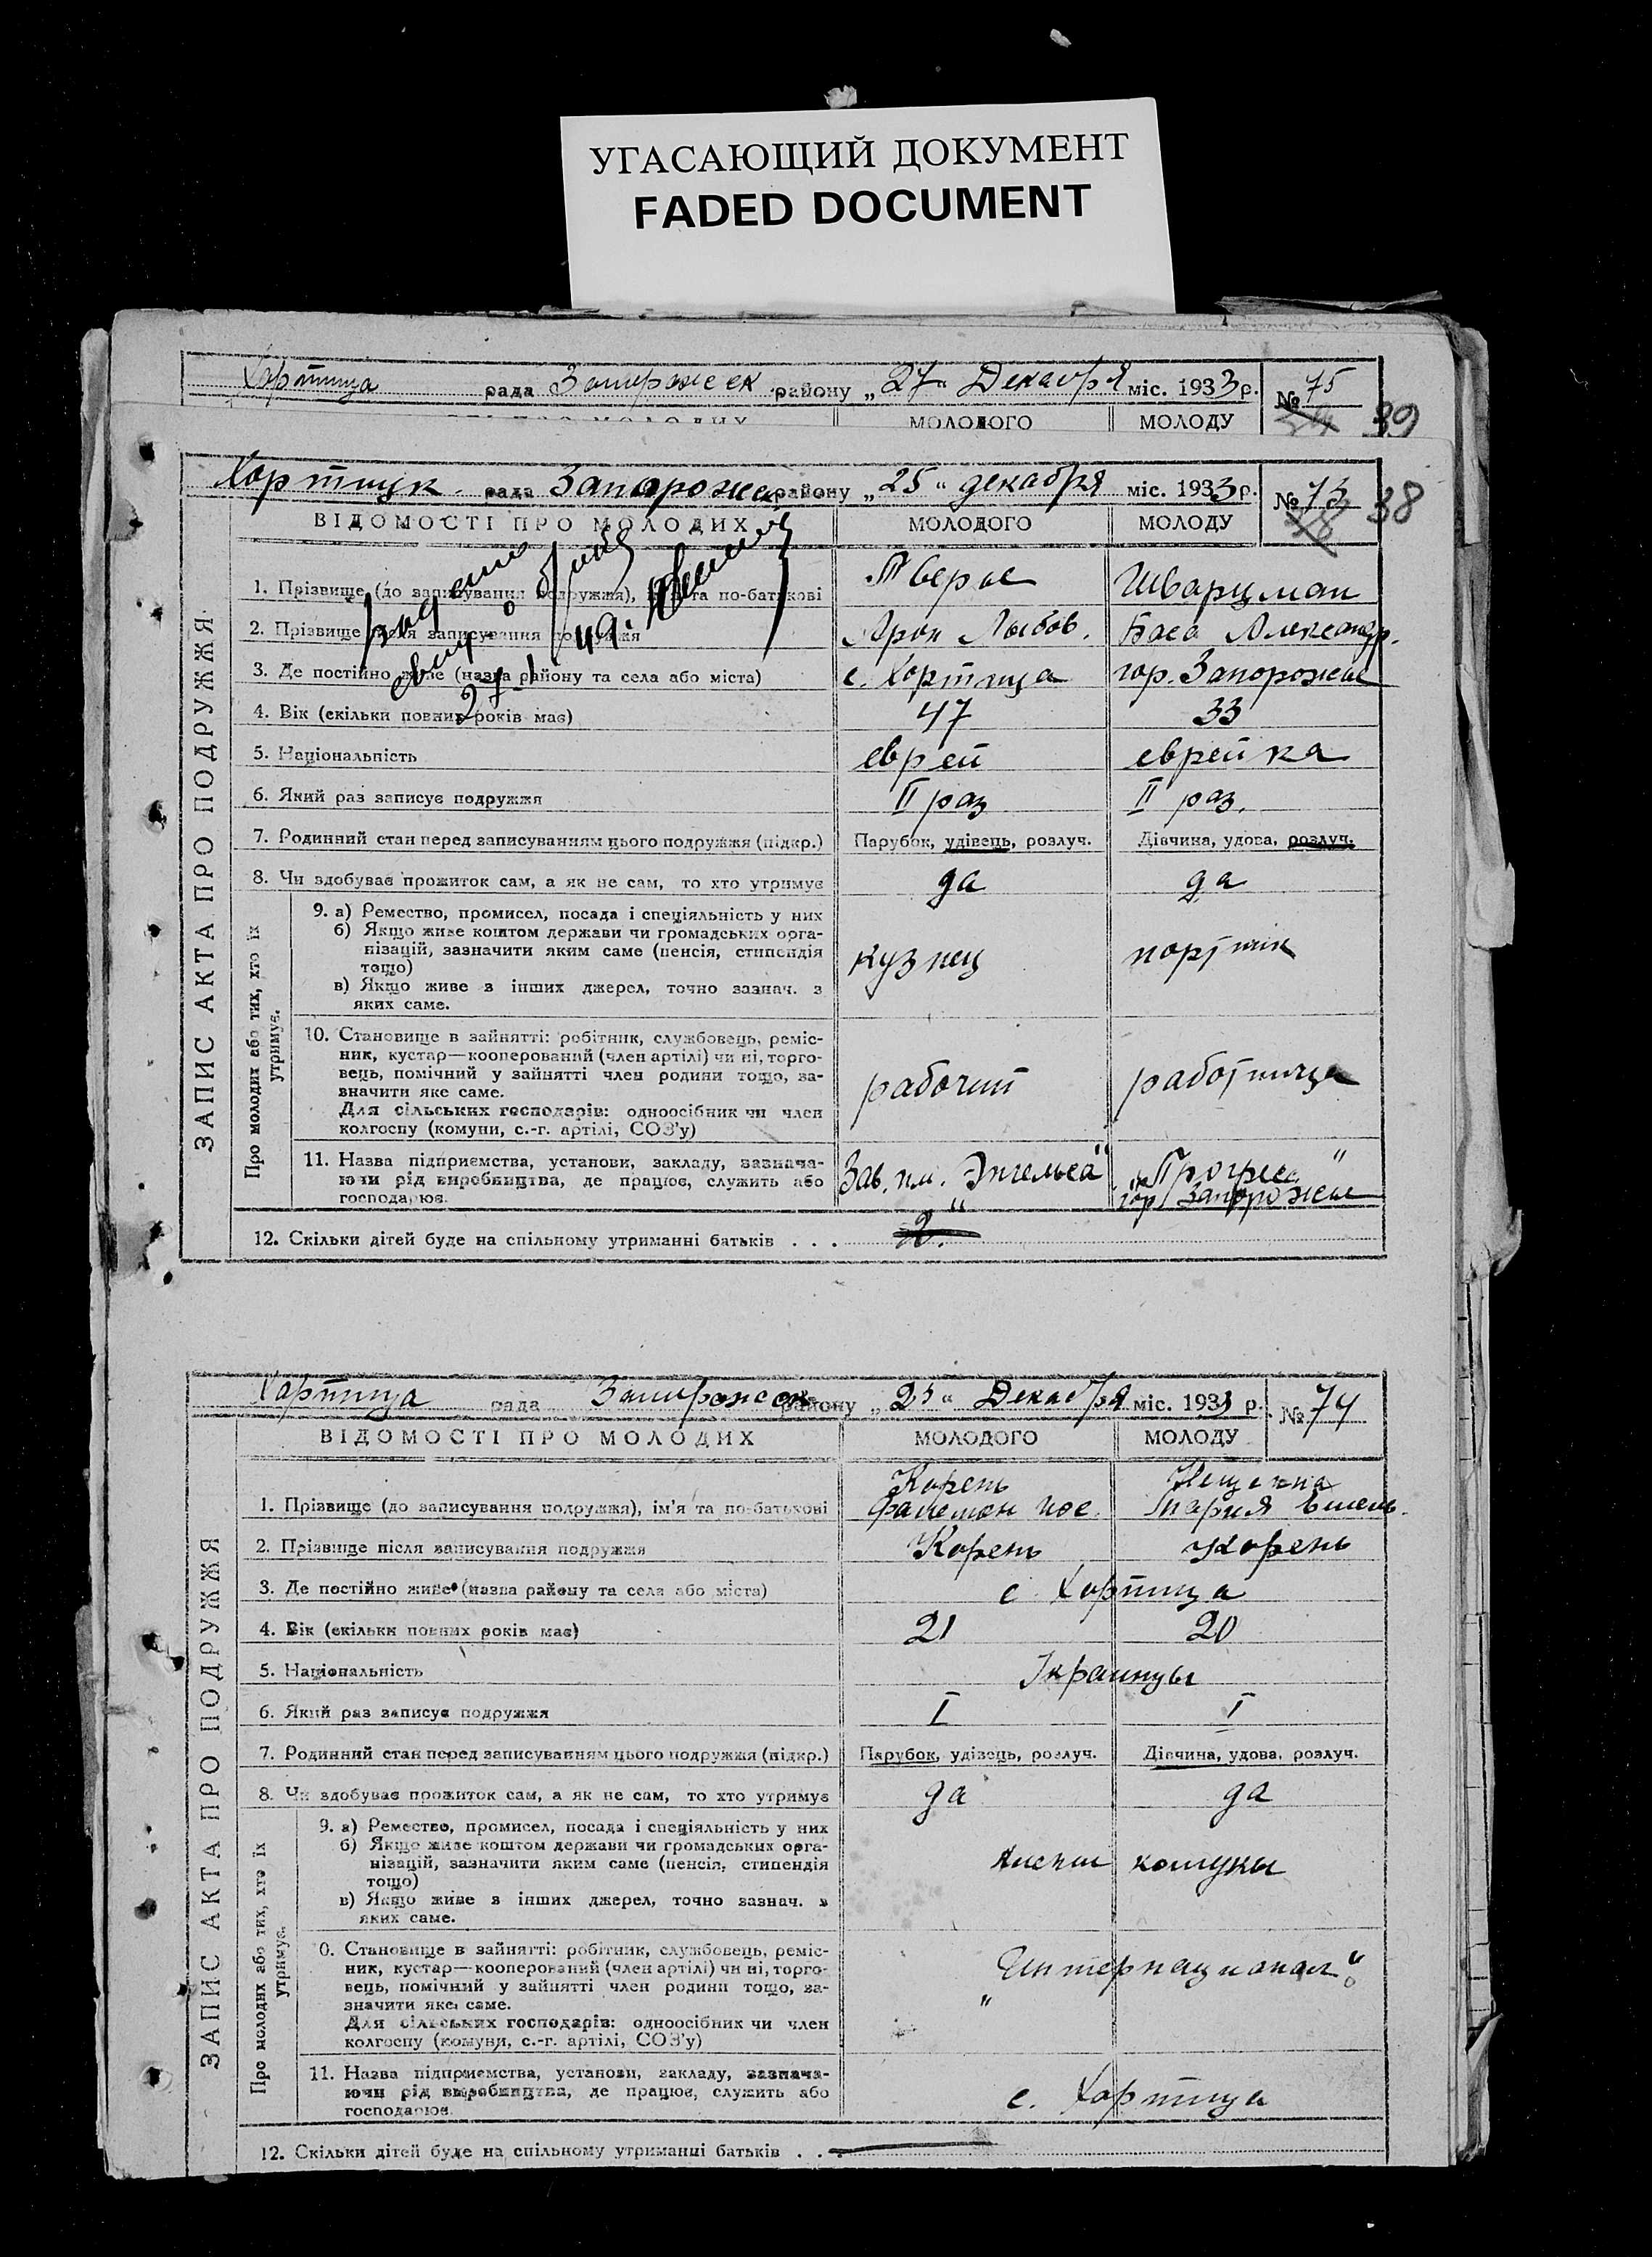 УГАСАЮЩИЙ ДОКУМЕНТ
FADED DOCUMENT
Хортица рада Запорожск району „27“ Декабря міс. 1933 р. № 75
39
МОЛОДОГО МОЛОДУ
Хортицк рада Запорожск району „25“ декабря міс. 1933 р. № 73
38
ВІДОМОСТІ ПРО МОЛОДИХ МОЛОДОГО МОЛОДУ
ЗАПИС АКТА ПРО ПОДРУЖЖЯ.
1. Прізвище (до записування подружжя), ім'я та по-батькові Шварцман
2. Прізвище після записування подружжя Арон Лыбов. Бася Александр.
3. Де постійно живе (назва району та села або міста) с. Хортица гор. Запорожье
4. Вік (скільки повних років має) 47 33
5. Національність еврей еврейка
6. Який раз записує подружжя II раз II раз.
7. Родинний стан перед записуванням цього подружжя (підкр.) Парубок, удівець, розлуч. Дівчина, удова, розлуч.
8. Чи здобуває прожиток сам, а як не сам, то хто утримує да да
Про молодих або тих, хто їх утримує.
9. а) Ремество, промисел, посада і спеціяльність у них
б) Якщо живе коштом держави чи громадських орга-
нізацій, зазначити яким саме (пенсія, стипендія
тощо) кузнец
в) Якщо живе з інших джерел, точно зазнач. з
яких саме.
10. Становище в зайнятті: робітник, службовець, реміс-
ник, кустар—кооперований (член артілі) чи ні, торго-
вець, помічний у зайнятті член родини тощо, за-
значити яке саме. рабочий работница
Для сільських господарів: одноосібник чи член
колгоспу (комуни, с.-г. артілі, СОЗ'у)
11. Назва підприємства, установи, закладу, зазнача-
ючи рід виробництва, де працює, служить або Зав. им. „Энгельса“ „Прогресс“
господарює. гор Запорожье
12. Скільки дітей буде на спільному утриманні батьків . . . 2.
Хортица рада Запорожск району „25“ Декабря міс. 1933 р. № 74
ВІДОМОСТІ ПРО МОЛОДИХ МОЛОДОГО МОЛОДУ
ЗАПИС АКТА ПРО ПОДРУЖЖЯ
Корень
1. Прізвище (до записування подружжя), ім'я та по-батькові Мария
2. Прізвище після записування подружжя Корень Корень
3. Де постійно живе (назва району та села або міста) с. Хортица
4. Вік (скільки повних років має) 21 20
5. Національність Украинцы
6. Який раз записує подружжя I I
7. Родинний стан перед записуванням цього подружжя (підкр.) Парубок, удівець, розлуч. Дівчина, удова, розлуч.
8. Чи здобуває прожиток сам, а як не сам, то хто утримує да да
Про молодих або тих, хто їх утримує.
9. а) Ремество, промисел, посада і спеціяльність у них
б) Якщо живе коштом держави чи громадських орга-
нізацій, зазначити яким саме (пенсія, стипендія члены комуны
тощо)
в) Якщо живе з інших джерел, точно зазнач. з
яких саме.
0. Становище в зайнятті: робітник, службовець, реміс-
ник, кустар—кооперований (член артілі) чи ні, торго- „Интернационал“
вець, помічний у зайнятті член родини тощо, за-
значити яке саме.
Для сільських господарів: одноосібник чи член
колгоспу (комуни, с.-г. артілі, СОЗ'у)
11. Назва підприємства, установи, закладу, зазнача-
ючи рід виробництва, де працює, служить або с. Хортица
господарює.
12. Скільки дітей буде на спільному утриманні батьків . . .